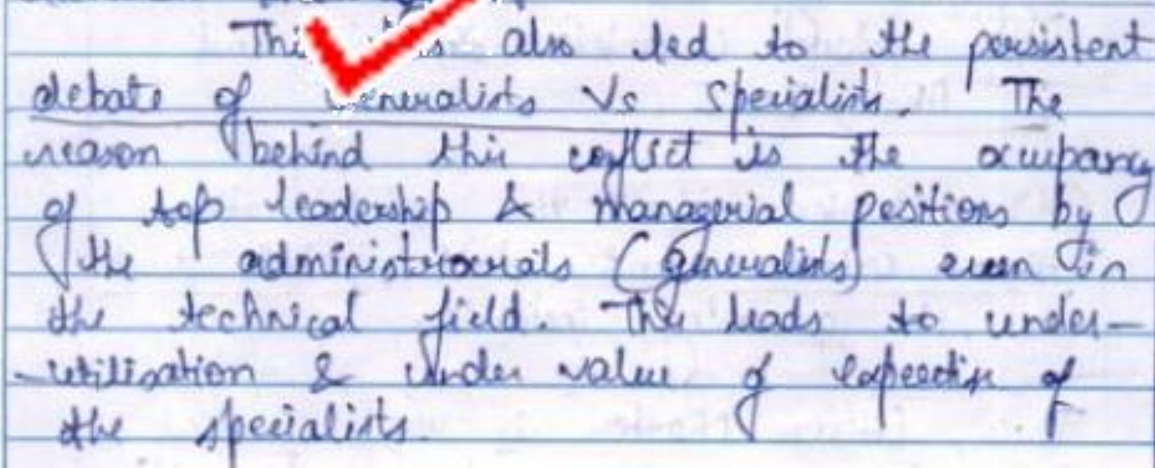 This has also led to the persistent
debate of Generalists Vs Specialists. The
reason behind this conflict is the occupancy
of top leadership & managerial positions by
the administrocrats (generalists) even in
the technical field. This leads to under-
-utilisation & under value of expertise of
the specialists.